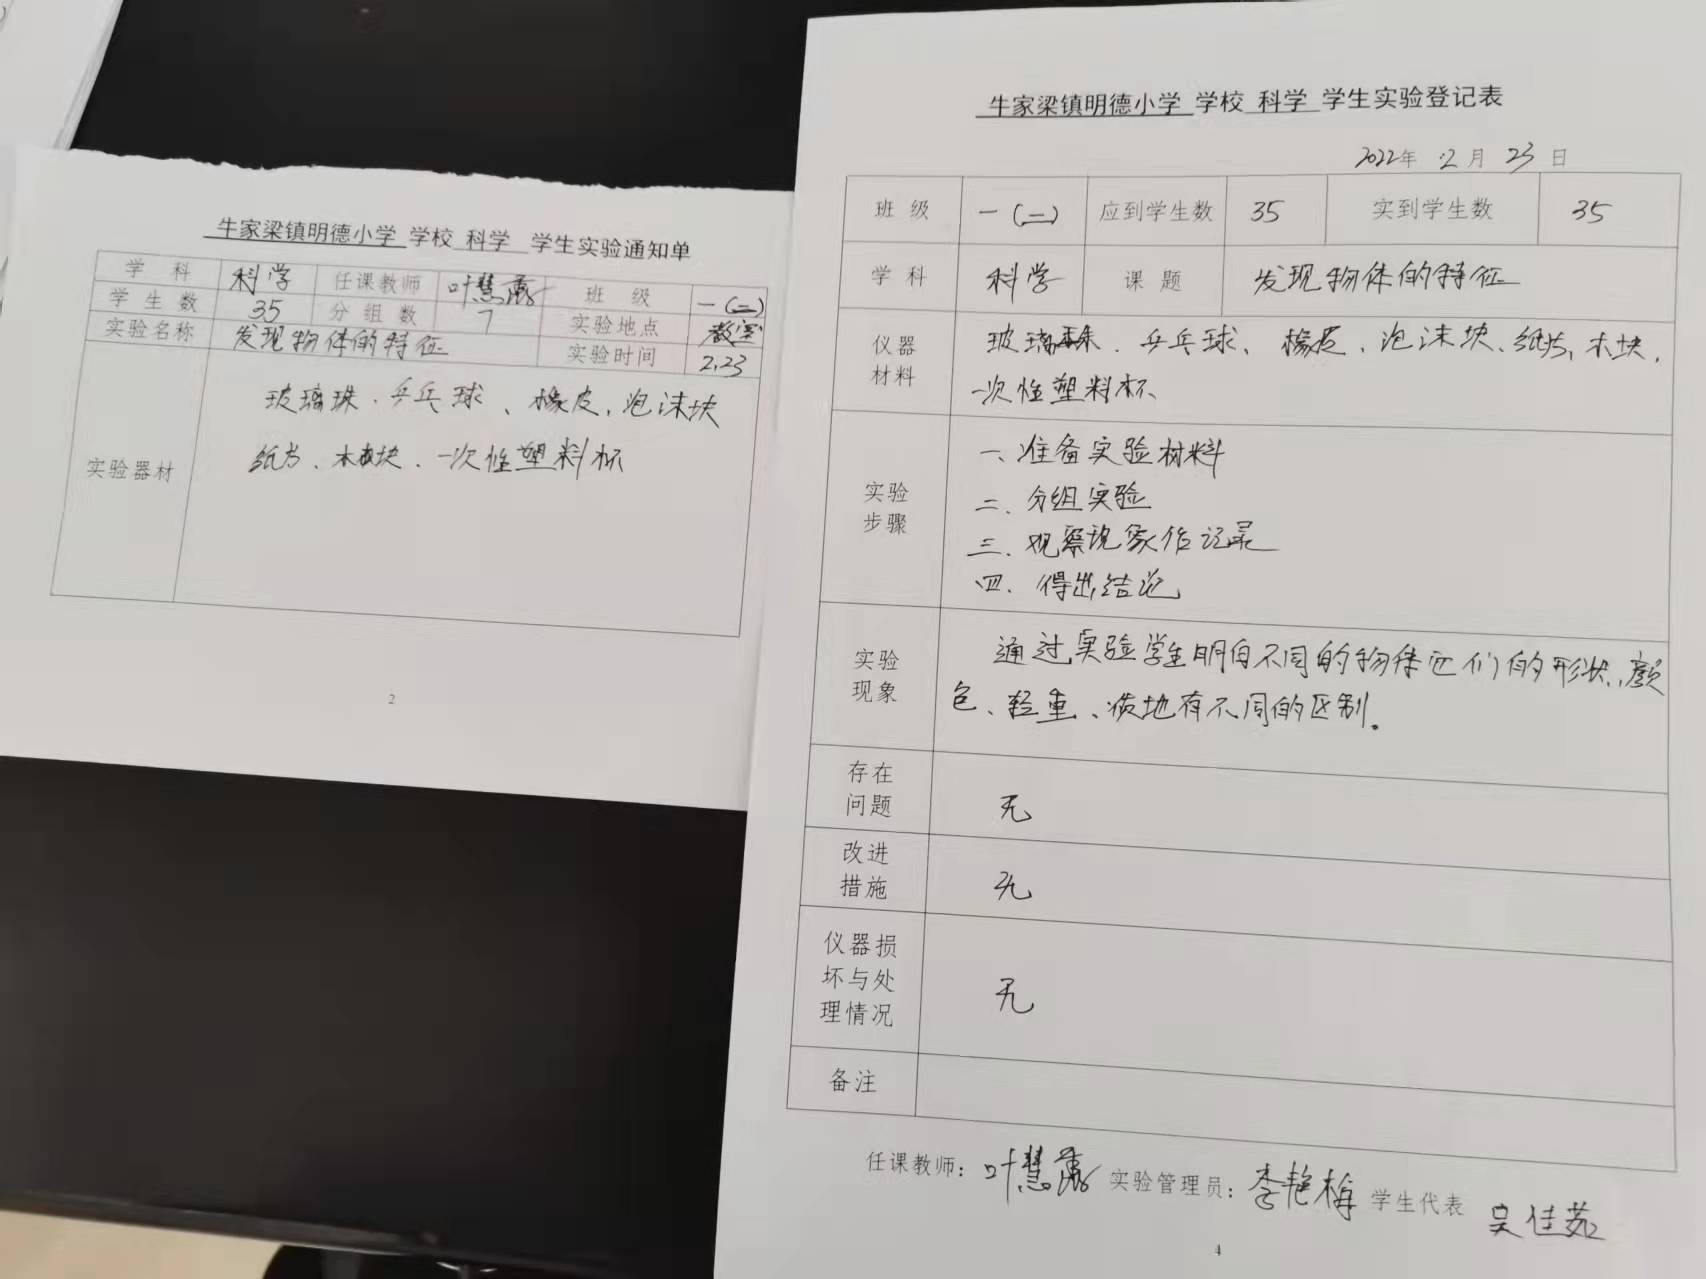 牛家梁镇明德小学 学校 科学 学生实验通知单
学科 科学 任课教师 叶慧 班级 一(二)
学生数 35 分组数 7 实验地点 教室
实验名称 发现物体的特征 实验时间 2.23
实验器材
玻璃珠、乒乓球、橡皮、泡沫块
纸片、木块、一次性塑料杯
2
牛家梁镇明德小学 学校 科学 学生实验登记表
2022年 2月 23日
班级 一(二) 应到学生数 35 实到学生数 35
学科 科学 课题 发现物体的特征
仪器
材料
玻璃珠、乒乓球、橡皮、泡沫块、纸片、木块、
一次性塑料杯
实验
步骤
一、准备实验材料
二、分组实验
三、观察现象作记录
四、得出结论
实验
现象
通过实验学生明白不同的物体它们的形状、颜
色、轻重、质地有不同的区别。
存在
问题
无
改进
措施
无
仪器损
坏与处
理情况
无
备注
任课教师：叶慧 实验管理员：李艳梅 学生代表 吴佳茹
4